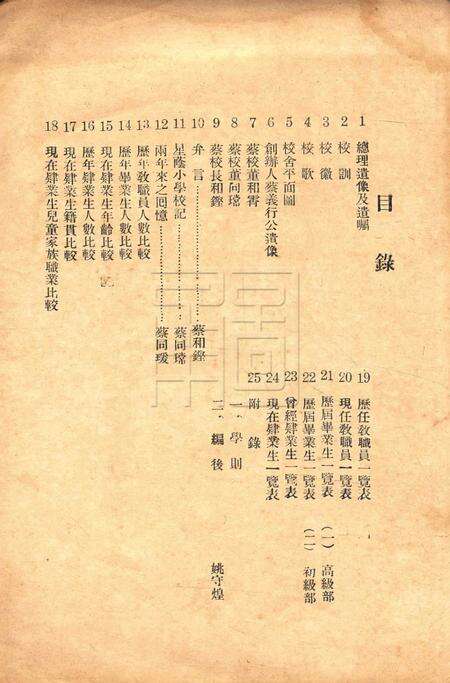 目錄
1 總理遺像及遺囑
2 校訓
3 校徽
4 校歌
5 校舍平面圖
6 創辦人蔡義行公遺像
7 蔡校董和霽
8 蔡校董同瑺
9 蔡校長和鏗
10 弁言……………蔡和鏗
11 星蔭小學校記……………蔡同瑺
12 兩年來之回憶……………蔡同瑗
13 歷年教職員人數比較
14 歷年畢業生人數比較
15 現在肄業生年齡比較
16 歷年肄業生人數比較
17 現在肄業生籍貫比較
18 現在肄業生兒童家族職業比較
19 歷任教職員一覽表
20 現任教職員一覽表
21 歷屆畢業生一覽表(一)高級部
22 歷屆畢業生一覽表(二)初級部
23 曾經肄業生一覽表
24 現在肄業生一覽表
25 附錄
一·學則
二·編後 姚守煌